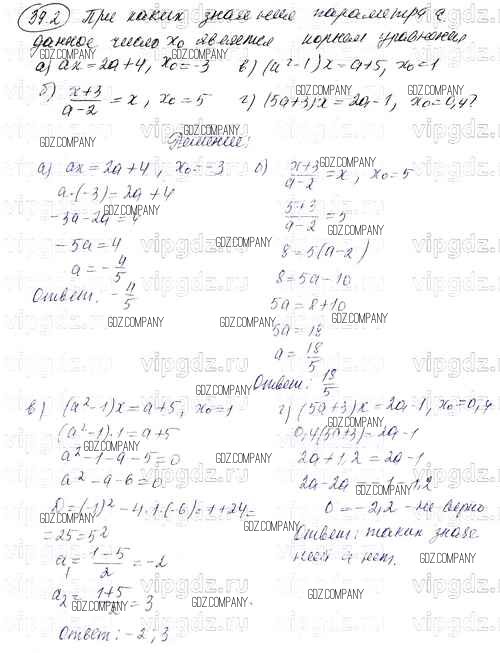 39.2 При каких значениях параметра а
данное число x₀ является корнем уравнения
а) ax = 2a+4, x₀ = -3 в) (a²-1)x = a+5, x₀ = 1
б) (x+3)/(a-2) = x, x₀ = 5 г) (5a+3)x = 2a-1, x₀ = 0,4?
Решение:
а) ax = 2a+4, x₀ = -3
a·(-3) = 2a+4
-3a-2a = 4
-5a = 4
a = -4/5
Ответ: -4/5
б) (x+3)/(a-2) = x, x₀ = 5
(5+3)/(a-2) = 5
8 = 5(a-2)
8 = 5a-10
5a = 8+10
5a = 18
a = 18/5
Ответ: 18/5
в) (a²-1)x = a+5, x₀ = 1
(a²-1)·1 = a+5
a²-1-a-5 = 0
a²-a-6 = 0
D = (-1)²-4·1·(-6) = 1+24 =
= 25 = 5²
a₁ = (1-5)/2 = -2
a₂ = (1+5)/2 = 3
Ответ: -2; 3
г) (5a+3)x = 2a-1, x₀ = 0,4
0,4(5a+3) = 2a-1
2a+1,2 = 2a-1
2a-2a = -1-1,2
0 = -2,2 - не верно
Ответ: таких значе
ний а нет.
GDZ.COMPANY
vipgdz.ru